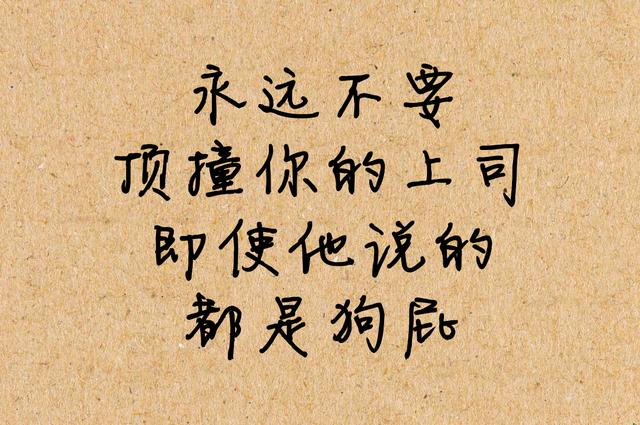 永远不要
顶撞你的上司
即使他说的
都是狗屁